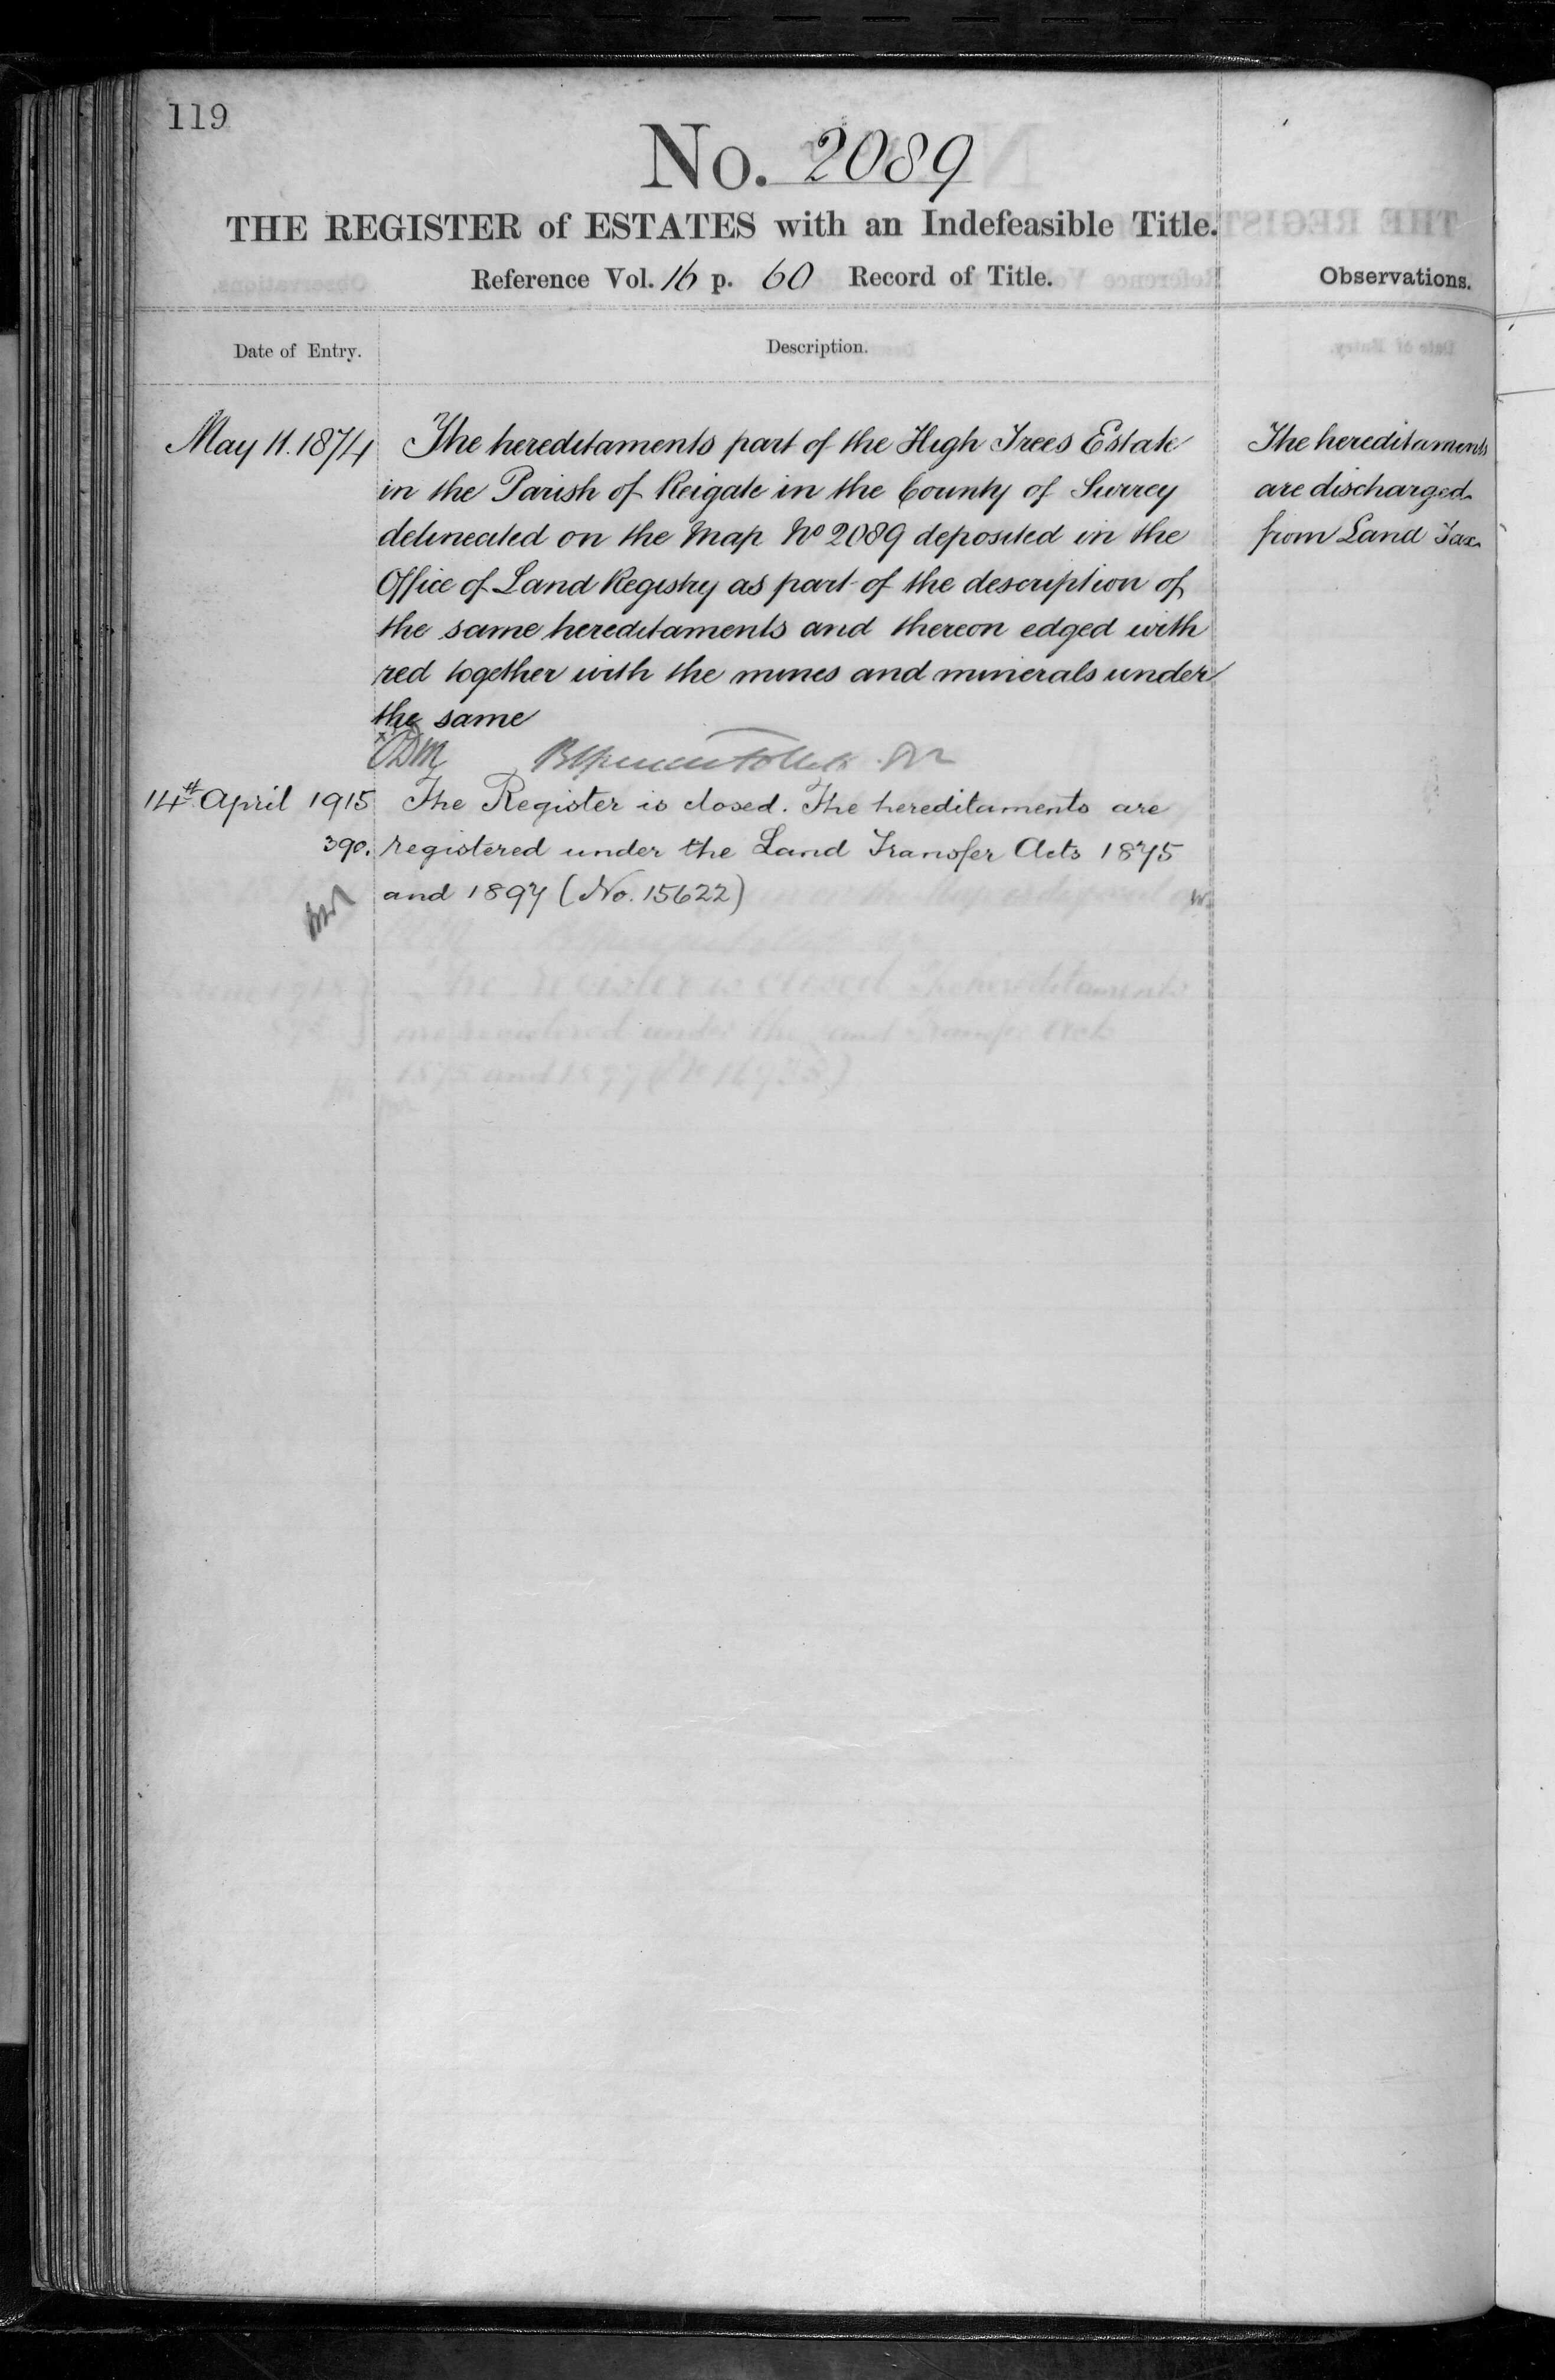 119
No. 2089
THE REGISTER of ESTATES with an Indefeasible Title.
Reference Vol. 16 p. 60 Record of Title.
Observations.
Date of Entry.
Description.
May 11. 1874
The hereditaments part of the High Trees Estate
in the Parish of Reigate in the County of Surrey
delineated on the Map No 2089 deposited in the
Office of Land Registry as part of the description of
the same hereditaments and thereon edged with
red together with the mines and minerals under
the same
The hereditaments
are discharged
from Land Tax
14th April 1915
390.
The Register is closed. The hereditaments are
registered under the Land Transfer Acts 1875
and 1897 (No. 15622)